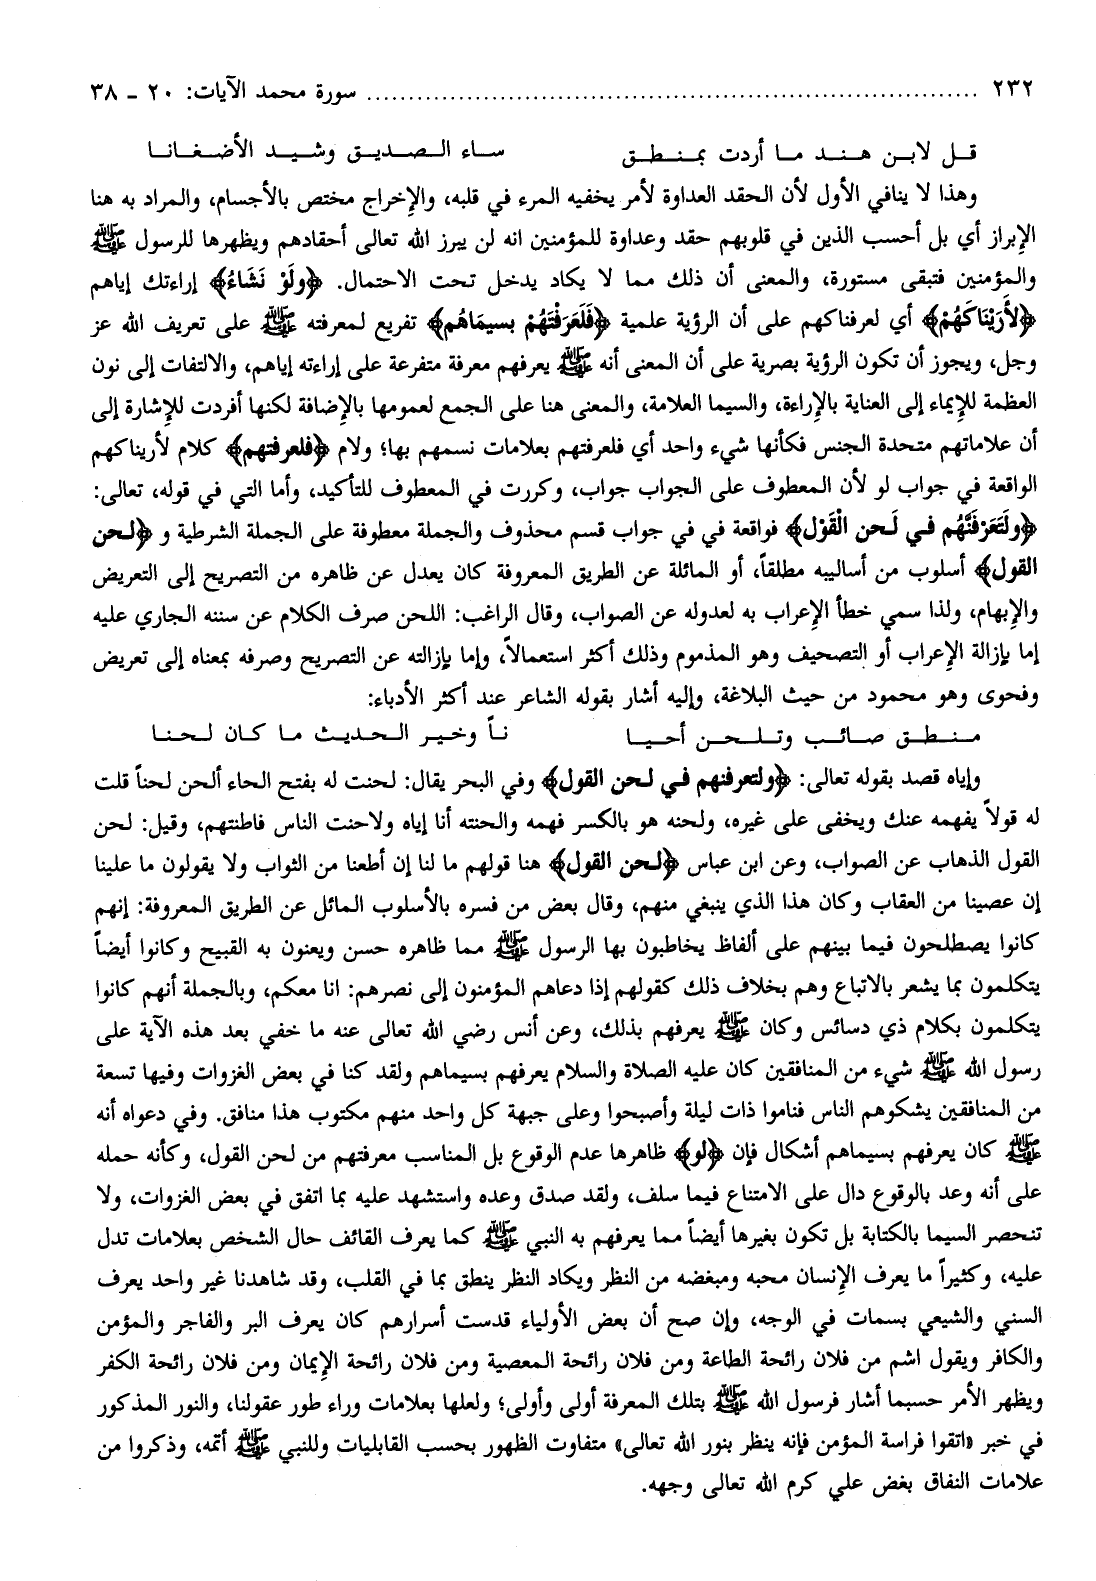 ٢٣٢ ........................................ سورة محمد الآيات: ٢٠ ـ ٣٨
قـل لابـن هـنـد مـا أردت بمـنـطـق ســاء الـصـديـق وشـيـد الأضـغـانـا
وهذا لا ينافي الأول لأن الحقد العداوة لأمر يخفيه المرء في قلبه، والإخراج مختص بالأجسام، والمراد به هنا
الإبراز أي بل أحسب الذين في قلوبهم حقد وعداوة للمؤمنين انه لن يبرز الله تعالى أحقادهم ويظهرها للرسول ﷺ
والمؤمنين فتبقى مستورة، والمعنى أن ذلك مما لا يكاد يدخل تحت الاحتمال. ﴿ولَوْ نَشَاءُ﴾ إراءتك إياهم
﴿لأَرَيْنَاكَهُمْ﴾ أي لعرفناكهم على أن الرؤية علمية ﴿فَلَعَرَفْتَهُمْ بسيمَاهُم﴾ تفريع لمعرفته ﷺ على تعريف الله عز
وجل، ويجوز أن تكون الرؤية بصرية على أن المعنى أنه ﷺ يعرفهم معرفة متفرعة على إراءته إياهم، والالتفات إلى نون
العظمة للإيماء إلى العناية بالإراءة، والسيما العلامة، والمعنى هنا على الجمع لعمومها بالإضافة لكنها أفردت للإشارة إلى
أن علاماتهم متحدة الجنس فكأنها شيء واحد أي فلعرفتهم بعلامات نسمهم بها؛ ولام ﴿فلعرفتهم﴾ كلام لأريناكهم
الواقعة في جواب لو لأن المعطوف على الجواب جواب، وكررت في المعطوف للتأكيد، وأما التي في قوله، تعالى:
﴿ولَتَعَرْفَنَّهُم في لَحن الْقَوْل﴾ فواقعة في في جواب قسم محذوف والجملة معطوفة على الجملة الشرطية و ﴿لحن
القول﴾ أسلوب من أساليبه مطلقاً، أو المائلة عن الطريق المعروفة كان يعدل عن ظاهره من التصريح إلى التعريض
والإبهام، ولذا سمي خطأ الإعراب به لعدوله عن الصواب، وقال الراغب: اللحن صرف الكلام عن سننه الجاري عليه
إما بإزالة الإعراب أو التصحيف وهو المذموم وذلك أكثر استعمالاً، وإما بإزالته عن التصريح وصرفه بمعناه إلى تعريض
وفحوى وهو محمود من حيث البلاغة، وإليه أشار بقوله الشاعر عند أكثر الأدباء:
مـنـطـق صـائـب وتـلـحـن أحـيـا نـاً وخـيـر الـحـديـث مـا كـان لـحـنـا
وإياه قصد بقوله تعالى: ﴿ولتعرفنهم في لحن القول﴾ وفي البحر يقال: لحنت له بفتح الحاء ألحن لحناً قلت
له قولاً يفهمه عنك ويخفى على غيره، ولحنه هو بالكسر فهمه والحنته أنا إياه ولاحنت الناس فاطنتهم، وقيل: لحن
القول الذهاب عن الصواب، وعن ابن عباس ﴿لحن القول﴾ هنا قولهم ما لنا إن أطعنا من الثواب ولا يقولون ما علينا
إن عصينا من العقاب وكان هذا الذي ينبغي منهم، وقال بعض من فسره بالأسلوب المائل عن الطريق المعروفة: إنهم
كانوا يصطلحون فيما بينهم على ألفاظ يخاطبون بها الرسول ﷺ مما ظاهره حسن ويعنون به القبيح وكانوا أيضاً
يتكلمون بما يشعر بالاتباع وهم بخلاف ذلك كقولهم إذا دعاهم المؤمنون إلى نصرهم: انا معكم، وبالجملة أنهم كانوا
يتكلمون بكلام ذي دسائس وكان ﷺ يعرفهم بذلك، وعن أنس رضي الله تعالى عنه ما خفي بعد هذه الآية على
رسول الله ﷺ شيء من المنافقين كان عليه الصلاة والسلام يعرفهم بسيماهم ولقد كنا في بعض الغزوات وفيها تسعة
من المنافقين يشكوهم الناس فناموا ذات ليلة وأصبحوا وعلى جبهة كل واحد منهم مكتوب هذا منافق. وفي دعواه أنه
ﷺ كان يعرفهم بسيماهم أشكال فإن ﴿لو﴾ ظاهرها عدم الوقوع بل المناسب معرفتهم من لحن القول، وكأنه حمله
على أنه وعد بالوقوع دال على الامتناع فيما سلف، ولقد صدق وعده واستشهد عليه بما اتفق في بعض الغزوات، ولا
تنحصر السيما بالكتابة بل تكون بغيرها أيضاً مما يعرفهم به النبي ﷺ كما يعرف القائف حال الشخص بعلامات تدل
عليه، وكثيراً ما يعرف الإنسان محبه ومبغضه من النظر ويكاد النظر ينطق بما في القلب، وقد شاهدنا غير واحد يعرف
السني والشيعي بسمات في الوجه، وإن صح أن بعض الأولياء قدست أسرارهم كان يعرف البر والفاجر والمؤمن
والكافر ويقول اشم من فلان رائحة الطاعة ومن فلان رائحة المعصية ومن فلان رائحة الإيمان ومن فلان رائحة الكفر
ويظهر الأمر حسبما أشار فرسول الله ﷺ بتلك المعرفة أولى وأولى؛ ولعلها بعلامات وراء طور عقولنا، والنور المذكور
في خبر «اتقوا فراسة المؤمن فإنه ينظر بنور الله تعالى» متفاوت الظهور بحسب القابليات وللنبي ﷺ أتمه، وذكروا من
علامات النفاق بغض علي كرم الله تعالى وجهه.